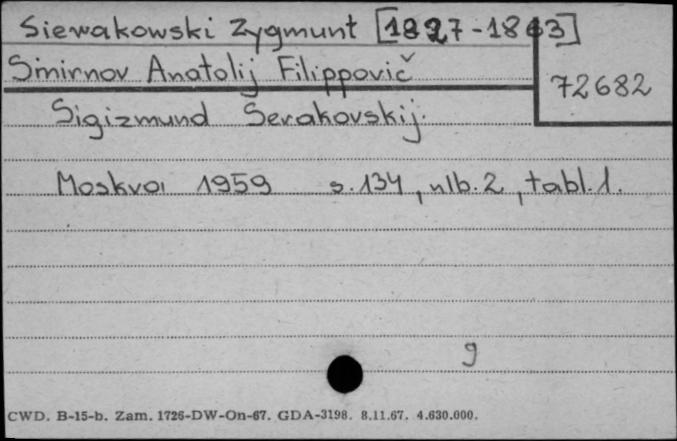 Sierakowski Zygmunt [1827-1863]
Smirnov Anatolij Filippovič
72682
Sigizmund Serakovskij.
Moskva 1959 s. 134, nlb. 2, tabl. 1.
g
CWD. B-15-b. Zam. 1726-DW-On-67. GDA-3198. 8.11.67. 4.630.000.